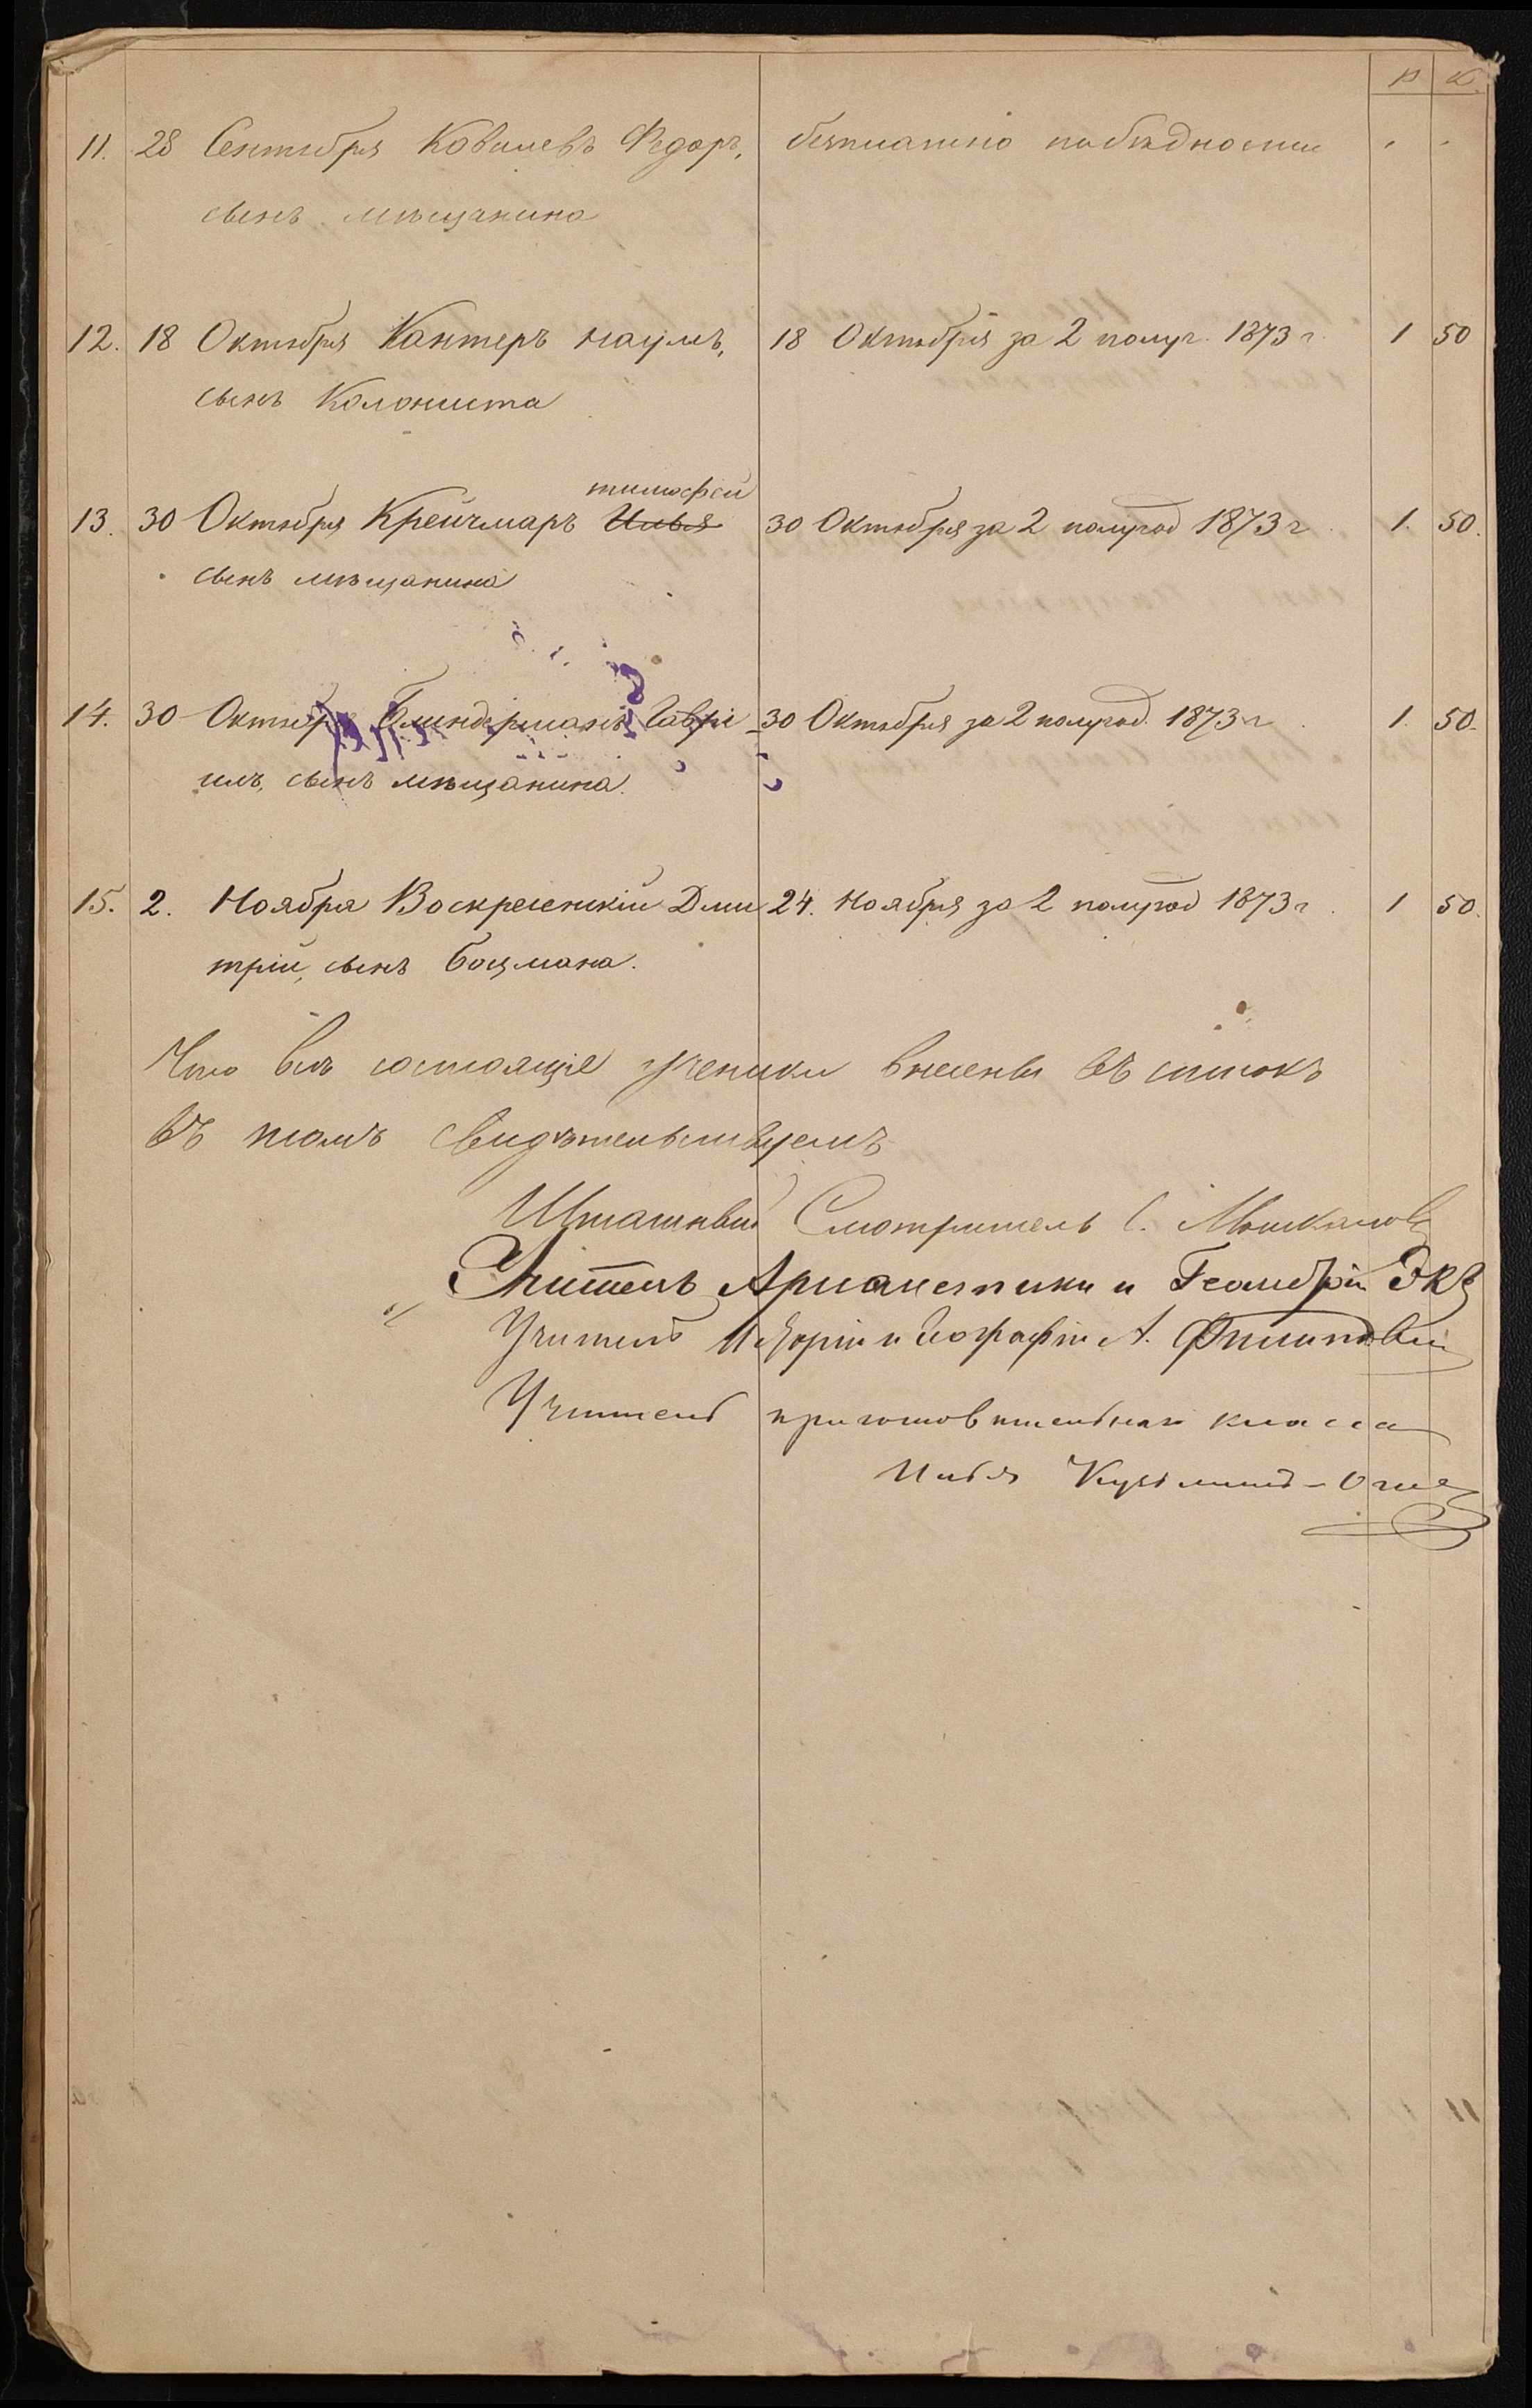 р к.
11. 28 Сентября Ковалевъ Федоръ, безплатно по бѣдности
сынъ мѣщанина
12. 18 Октября Кантеръ Наумъ, 18 Октября за 2 полуг. 1873 г. 1 50
сынъ Колониста
тимофей
13. 30 Октября Крейчмаръ Илья 30 Октября за 2 полугод 1873 г. 1. 50.
сынъ мѣщанина
14. 30 Октября Блиндерманъ Гаврі 30 Октября за 2 полугод. 1873 г. 1. 50.
илъ, сынъ мѣщанина.
15. 2. Ноября Воскресенскій Дми 24. Ноября за 2 полугод 1873 г. 1 50.
трій, сынъ боцмана.
Что всѣ состоящіе ученики внесены въ списокъ
въ томъ свидѣтельствуемъ
Штатный Смотритель С.
Учитель Ариѳметики и Геометріи
Учитель Исторіи и Географіи А. Филиповъ
Учитель приготовительнаго класса
Илья Кузьминъ-